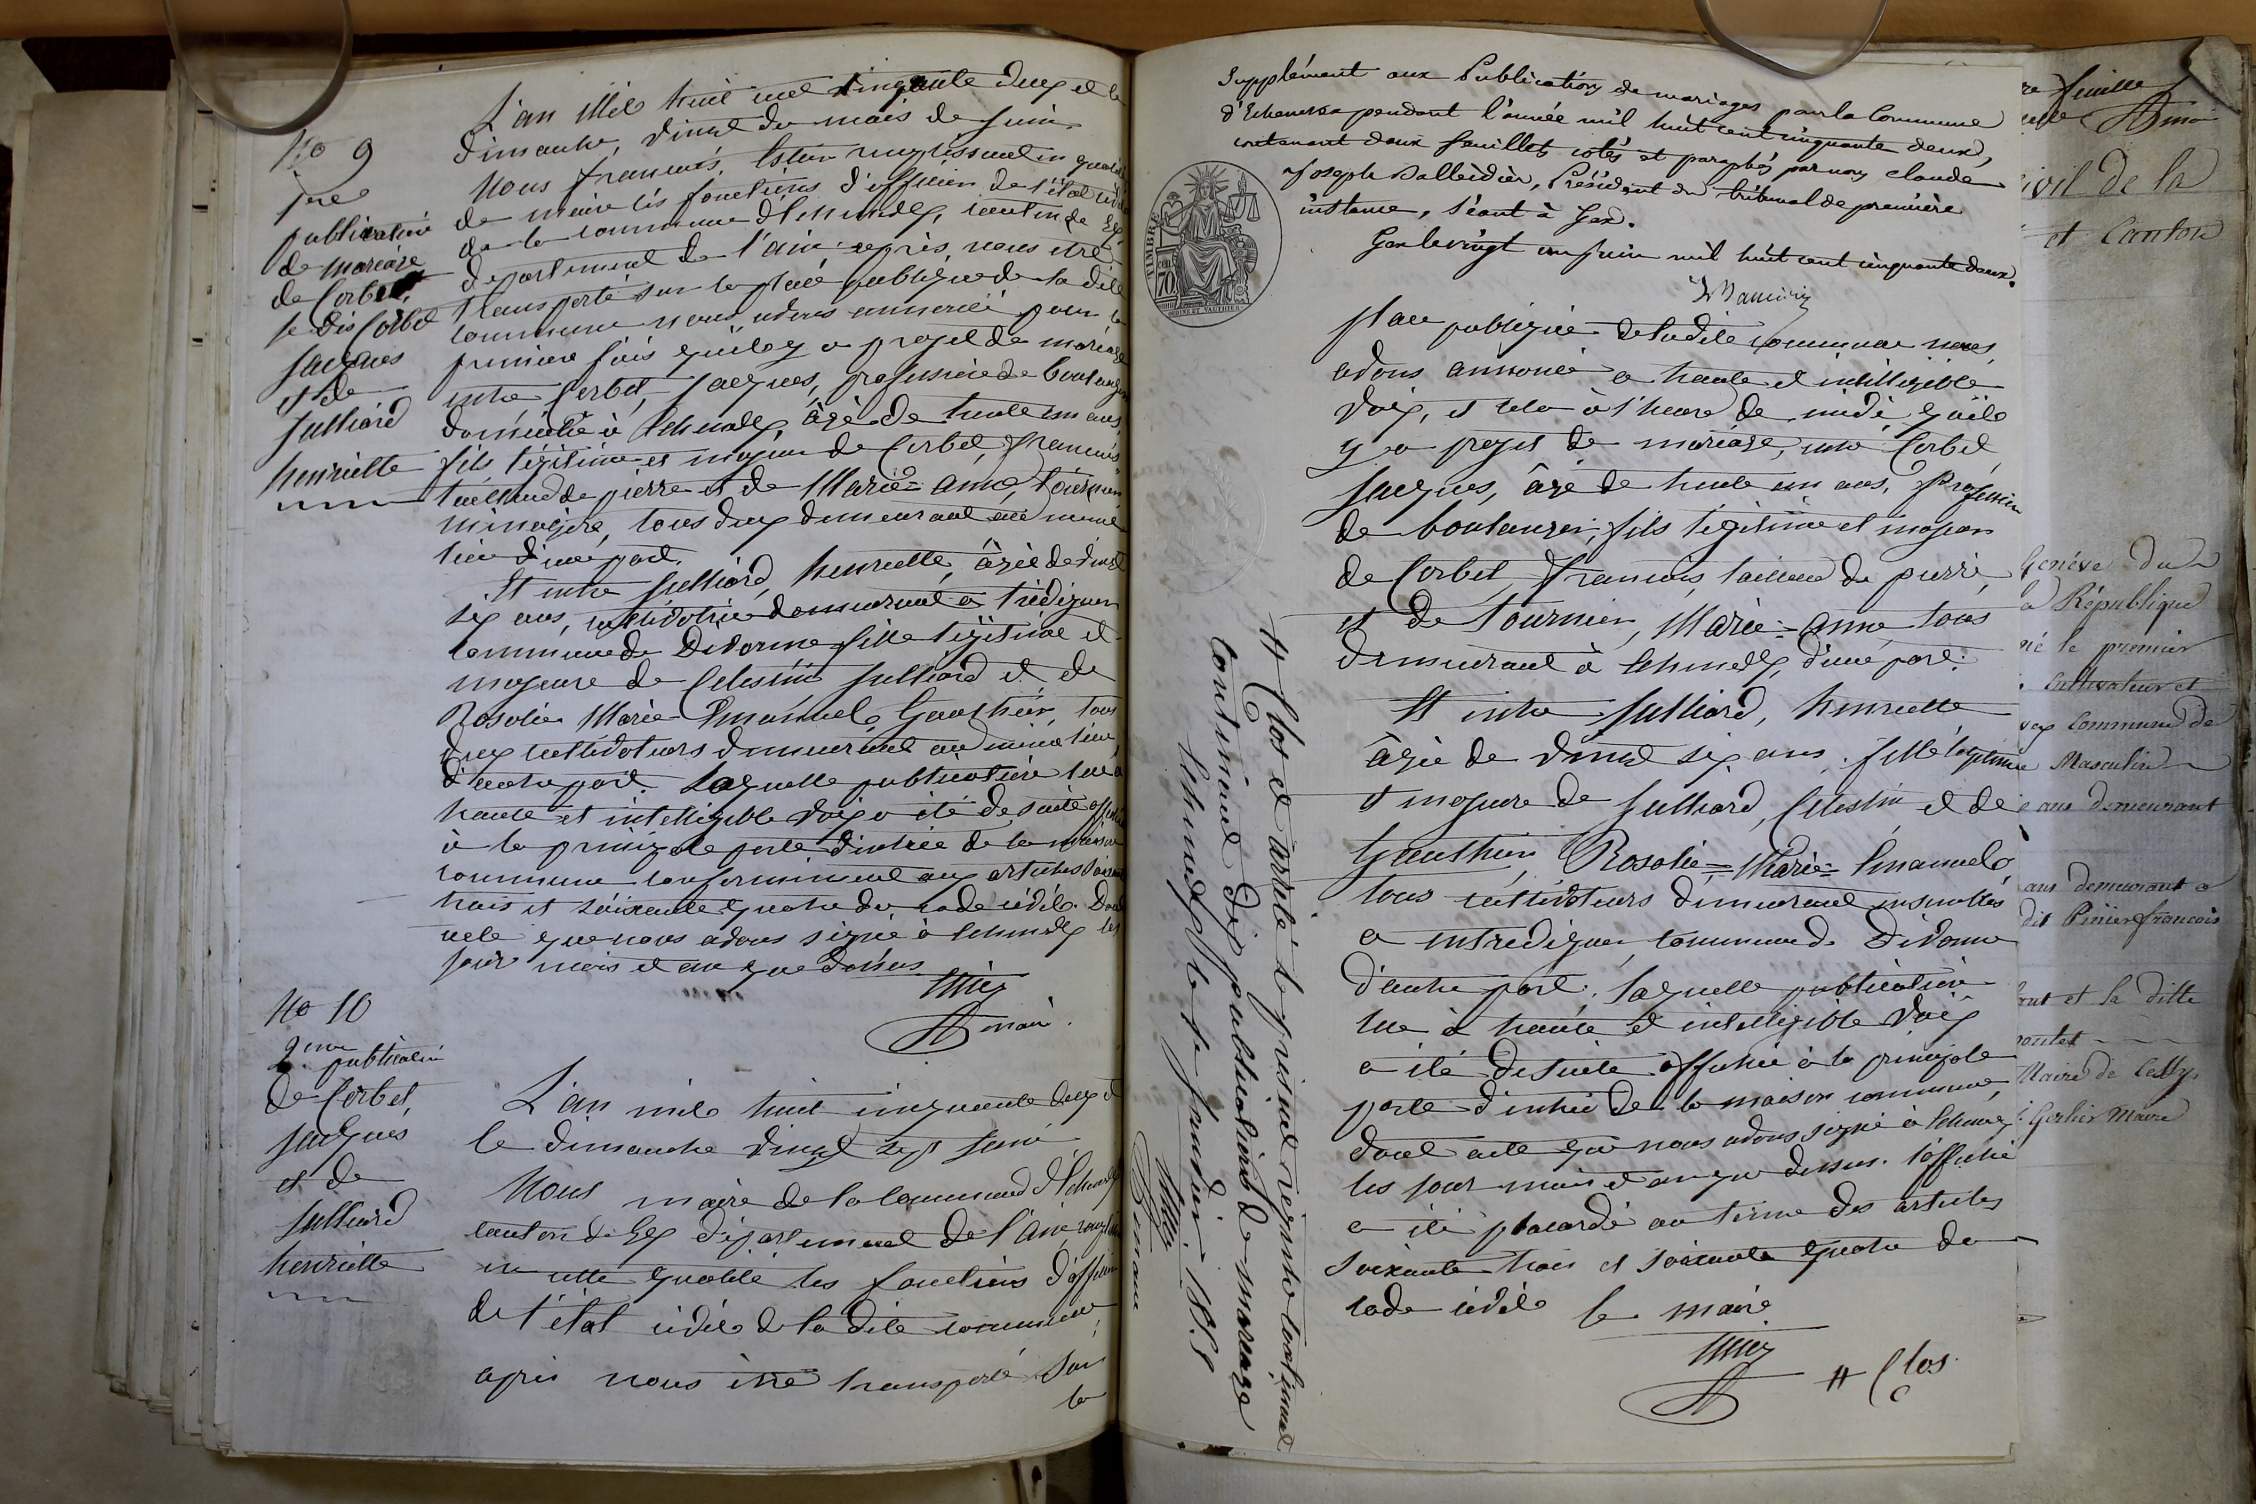 No 9
1re
publication
de mariage
de Corbet,
se dis Corbet
Jacques
et de
Julliard
henriette
L'an Mil huit cent cinquante deux et le
dimanche, vingt du mois de Juin
Nous françois, remplissant en qualité
de maire les fonctions d'officier de l'état civil
de la commune d'Echenevex, canton de Gex
département de l'ain; après nous être
transporté sur la place publique de la dite
commune nous avons annoncé pour la
première fois qu'il y a projet de mariage
entre Corbet, Jacques, profession de boulanger
domicilié à Echenevex, âgé de trente un ans,
fils légitime et majeur de Corbet, françois
tailleur de pierre et de Marie=anne, tournier
ménagère, tous deux demeurant au même
lieu d'une part.
Et entre Julliard, henriette, âgée de vingt
six ans, cultivatrice demeurant a
commune de Divonne fille légitime et
majeure de Celestin Julliard et de
Rosalie Marie Emanuel, Gauthier, tous
deux cultivateurs demeurant au même lieu,
d'autre part. Laquelle publication lue à
haute et intelligible voix a été de suite affichée
à la principale porte d'entrée de la maison
commune conformément aux articles soixante
trois et soixante quatre du code civil. Dont
acte que nous avons signé à Echenevex les
jour mois et an que dessus
maire.
No 10
2me publication
de Corbet,
Jacques
et de
Julliard
henriette
L'an mil huit cinquante deux et
le dimanche vingt sept Juin
Nous maire de la commune d'Echenevex
canton de Gex département de l'ain, remplissant
en cette qualité les fonctions d'officier
de l'état civil de la dite commune,
après nous être transporté sur
la
Supplément aux Publications de mariages pour la Commune
d'Echenevex pendant l'année mil huit cent cinquante deux,
contenant deux feuillets cotés et paraphés par nous Claude
Joseph Balleidier, Président du tribunal de première
instance, séant à Gex.
Gex le vingt un juin mil huit cent cinquante deux.
TIMBRE
70
place publique de la dite commune nous
avons annoncé a haute et intelligible
voix, et cela à l'heure de midi qu'il
y a projet de mariage, entre Corbet
Jacques, âgé de trente un ans, Profession
de boulanger, fils légitime et majeur
de Corbet, françois, tailleur de pierre,
et de Tournier, Marie=anne, tous
demeurant à Echenevex, d'une part:
Et entre Julliard, henriette
âgée de vingt six ans, fille légitime
et majeure de Julliard, Celestin et de
Gauthier, Rosalie=Marie=Emanuel,
tous cultivateurs demeurant ensemble
a commune de Divonne
d'autre part. Laquelle publication
lue à haute et intelligible voix
a été de suite affichée à la principale
porte d'entrée de la maison commune,
dont acte que nous avons signé à Echenevex
les jour mois et an que dessus. L'affiche
a été placardé au terme des articles
soixante trois et soixante quatre du
code civil le maire
# Clos
# Clos et arrêté le présent régistre contenant
contenant dix publications de mariage
Echenevex le 1er janvier 1853
maire
re feuille
ivil de la
et Canton
Genève du
la République
né le premier
Cultivateur et
vex Commune de
Masculin
ans demeurant
ans demeurant a
dit Pinier françois
ont et la ditte
Maire de Cessy
Gerlier Maire